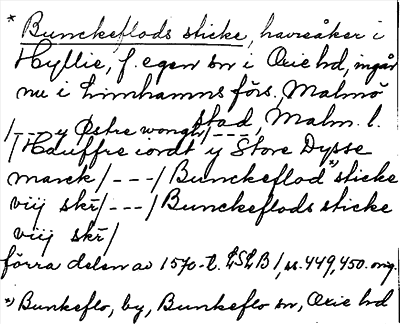 * Bunckeflods sticke, havreåker i
Hyllie, f. egen sn i Oxie hd, ingår
nu i Limhamns förs., Malmö
stad, Malm. l.
/--- y Østre wongh/---/
/Hauffre iordt y Store Dysse
marck/---/Bunckeflod x) sticke
viij skř/---/Bunckeflods sticke
viij skř/
förra delen av 1570-t. LSLB 1, ss. 449, 450. orig.
x) Bunkeflo, by, Bunkeflo sn, Oxie hd